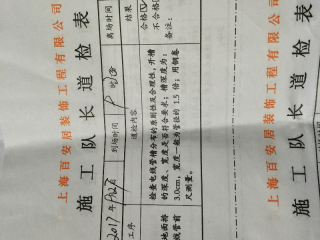 上海百安居装饰工程有限公司
施工队长道检表
到场时间
离场时间
工序
道检内容
结果
地面持
线管前
检查电线管槽分布的原则性及合理性，开槽
的深度、宽度是否符合要求；槽深度为：
3.0cm，宽度一般为管径的 1.5 倍；用钢卷
尺测量。
合格
不合格
备注：
上海百安居装饰工程有限公司
施工队长道检表